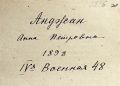 Анджан
Анна Петровна
1893
IVя Военная 48